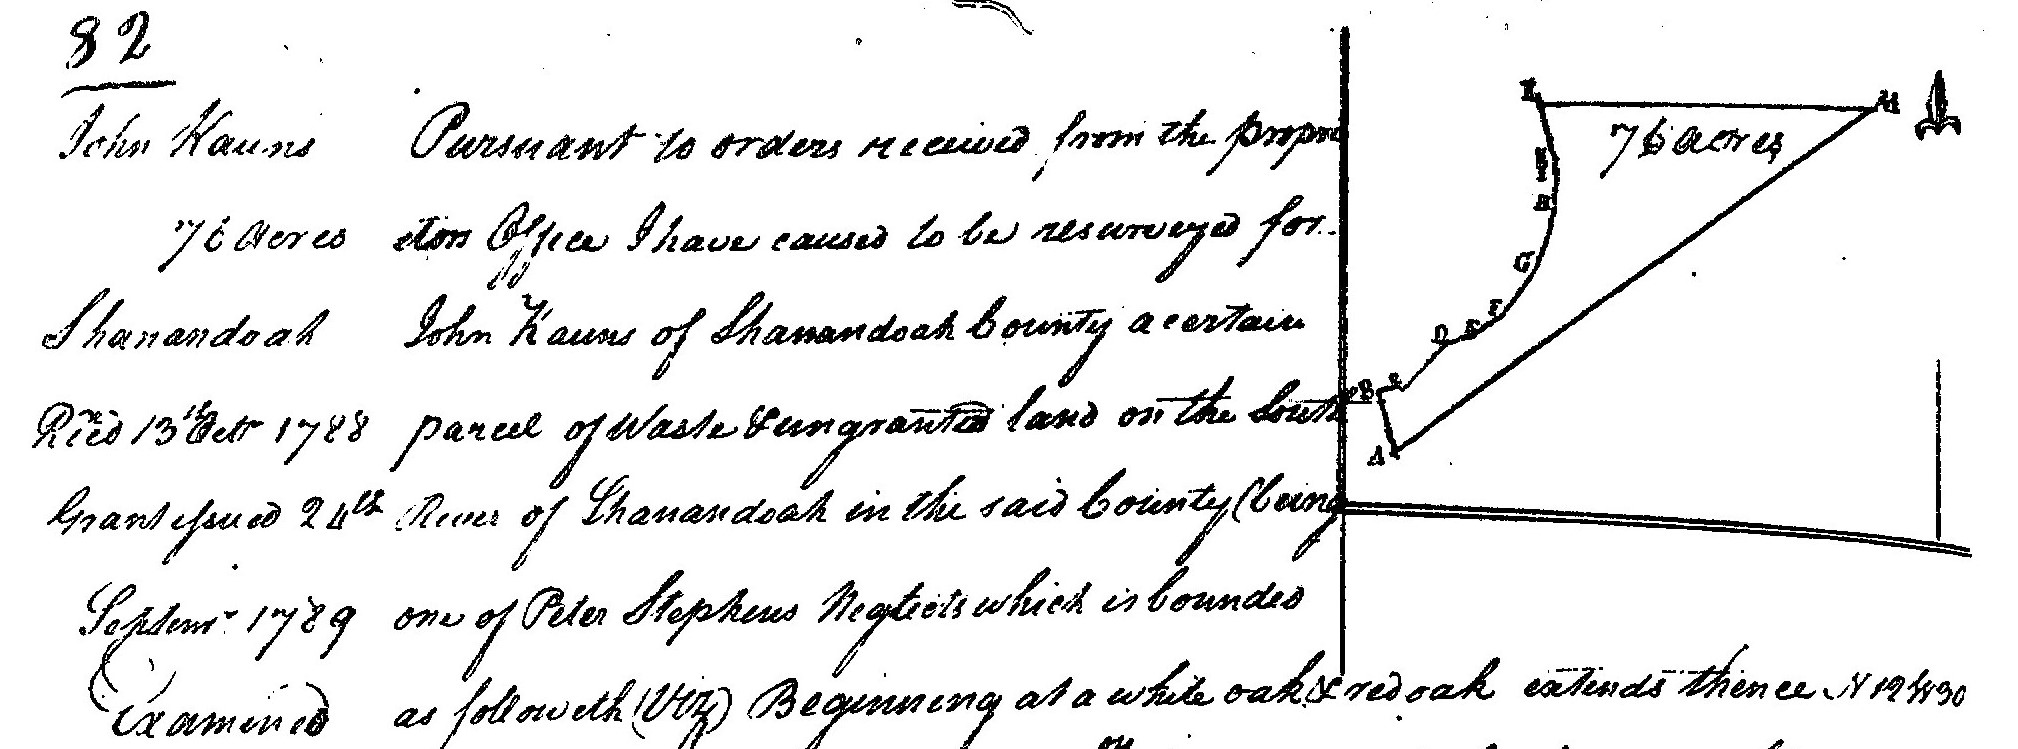 82
John Kauns Pursuant to orders received from the Propri
76 Acres etors Office I have caused to be resurveyed for
Shanandoah John Kauns of Shanandoah County a certain
Rced 13th Octr 1788 parcel of Waste & ungranted land on the South
Grant issued 24th River of Shanandoah in the said County (being
Septemr 1789 one of Peter Stephens Neglects which is bounded
Examined as followeth (Viz) Beginning at a white oak & red oak extends thence N 12 W 30
76 acres
A
B
C
D
E
F
G
H
M